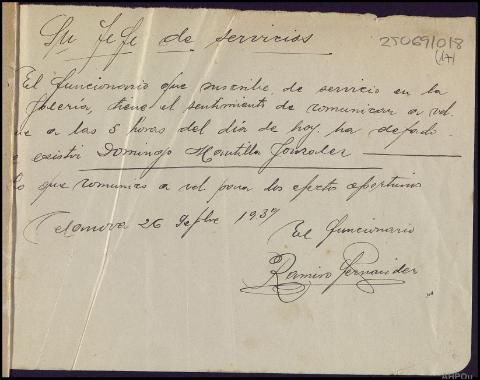 Su Jefe de servicios
25069/018
(17)
El funcionario que suscribe, de servicio en la
Galeria, tiene el sentimiento de comunicar a vd.
que a las 5 horas del día de hoy, ha dejado
existir Domingo Mantilla Gonzalez
lo que comunico a vd para los efectos oportunos
Celanova 26 Sepbre 1937
El funcionario
Ramiro Fernandez
AHPOu